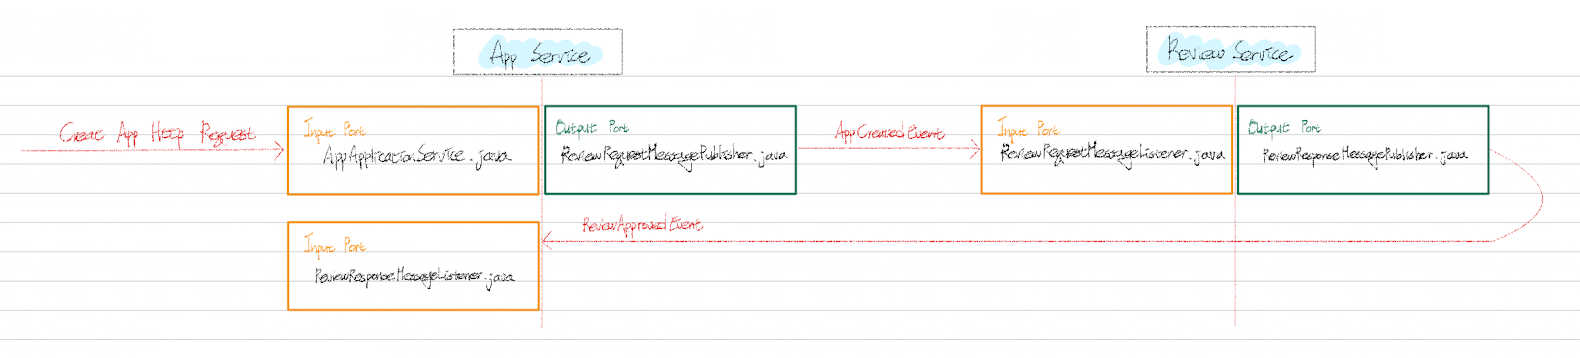 App Service
Review Service
Create App Http Request
Input Port
AppApplicationService.java
Output Port
ReviewRequestMessagePublisher.java
AppCreatedEvent
Input Port
ReviewRequestMessageListener.java
Output Port
ReviewResponseMessagePublisher.java
ReviewApprovedEvent
Input Port
ReviewResponseMessageListener.java